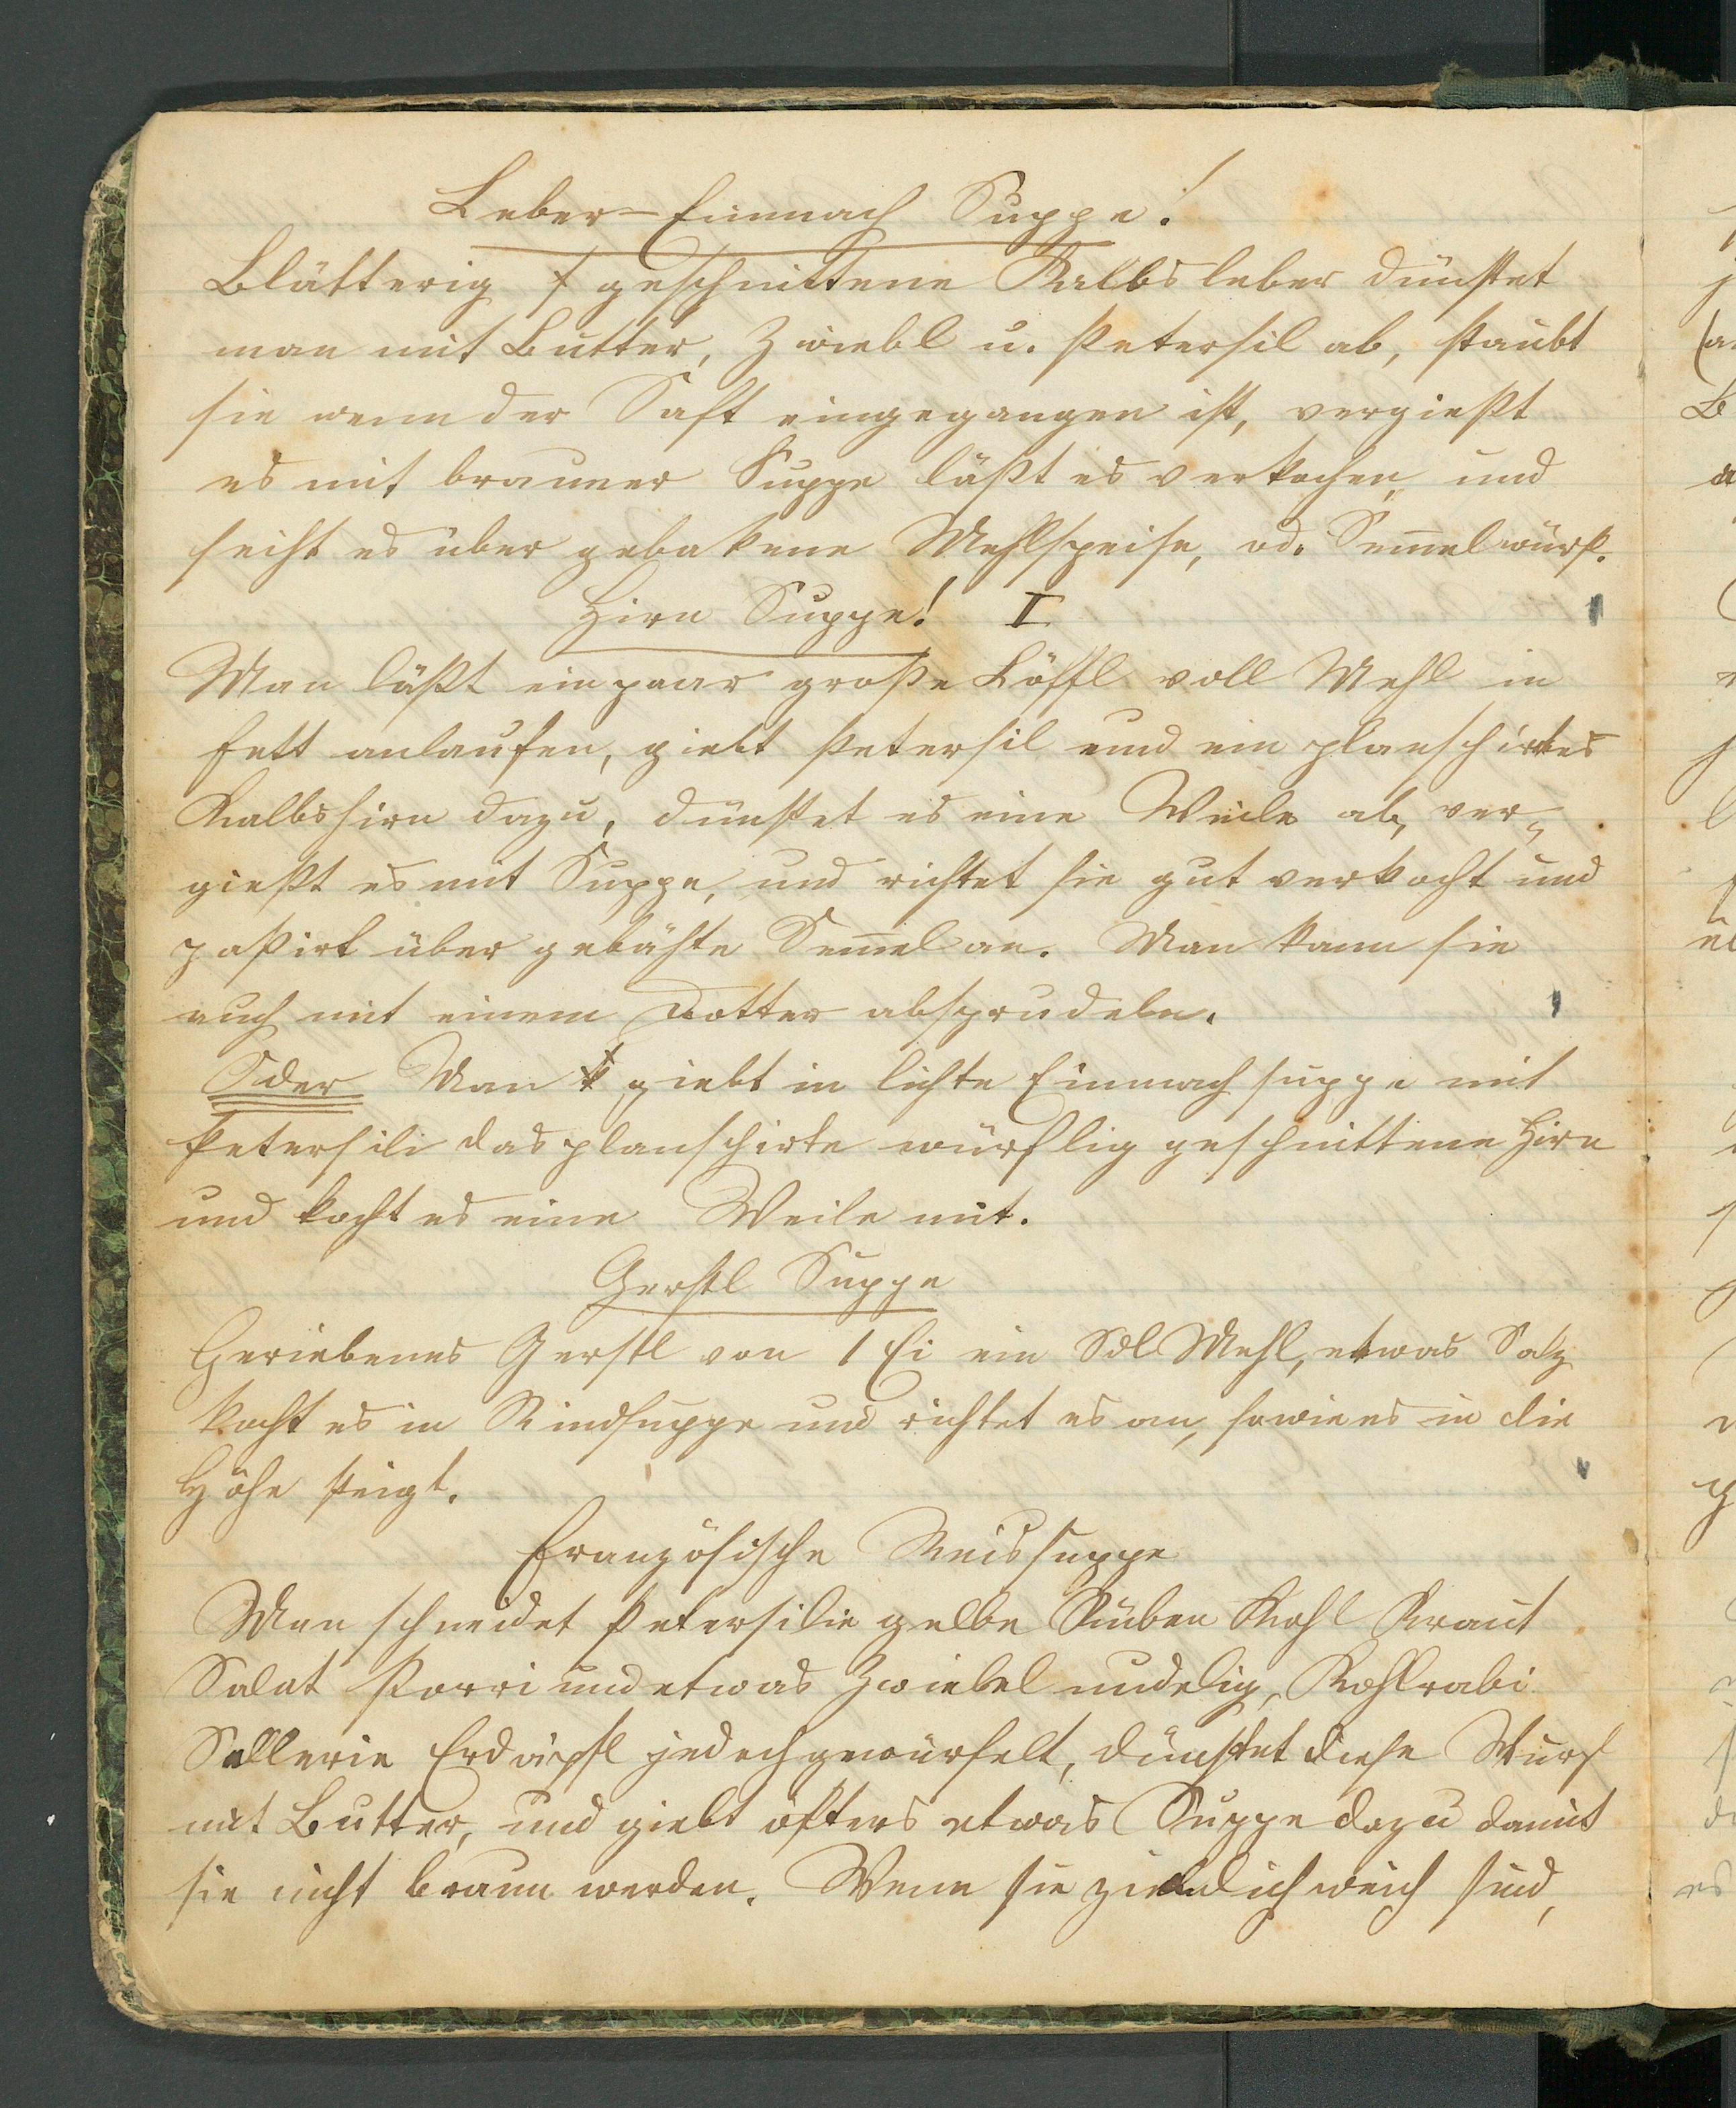 Leber-Einmach Suppe!
Blätterig geschnittene Kalbsleber dünstet
man mit Butter, Zwiebl u. Petersil ab, staubt
sie wenn der Saft eingegangen ist, vergießt
es mit brauner Suppe läßt es verkochen, und
seiht es über gebakene Mehlspeise, od. Sem̄elwürf.
Hirn Suppe! I
Man läßt ein paar große Löffl voll Mehl in
Fett anlaufen, giebt Petersil und ein planschirtes
Kalbshirn dazu, dünstet es eine Weile ab, ver„
gießt es mit Suppe, und richtet sie gut verkocht und
paßirt über gebähte Sem̄el an. Man kann sie
auch mit einem Dotter absprudeln.
Oder Man giebt in lichte Einmachsuppe mit
Petersili das planschirte würflig geschnittene Hirn
und kocht es eine Weile mit.
Gerstl Suppe
Geriebenes Gerstl von 1 Ei ein Sdl Mehl, etwas Salz
kocht es in Rindsuppe und richtet es an, sowie es in die
Höhe steigt.
Französische Reissuppe
Man schneidet Petersilie gelbe Rüben Kohl Kraut
Salat Porri und etwas Zwiebel nudelig, Kohlrabi
Sellerie Erdäpfl jedoch gewürfelt, dünstet diese Würf
mit Butter, und giebt öfters etwas Suppe dazu damit
sie nicht braun werden. Wenn sie ziemlich weich sind,